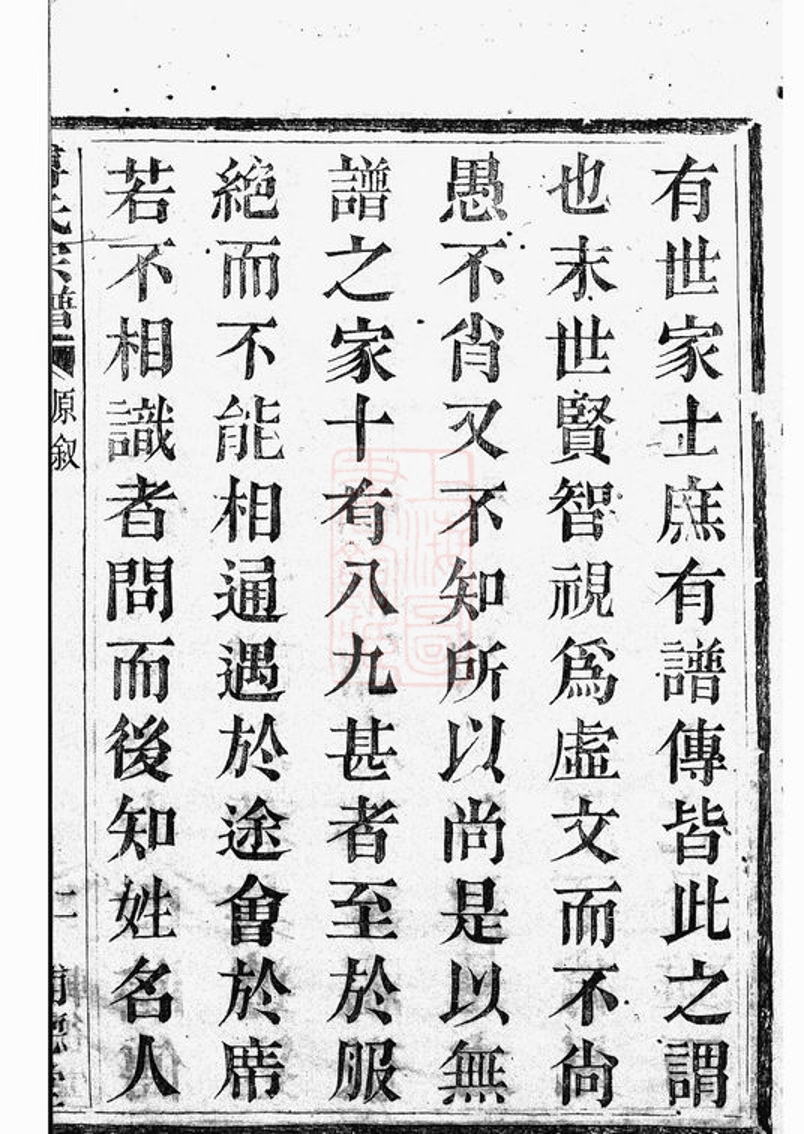 有世家士庶有譜傳皆此之謂
也末世賢智視為虛文而不尚
愚不肖又不知所以尚是以無
譜之家十有八九甚者至於服
絕而不能相通遇於途會於席
若不相識者問而後知姓名人
氏宗譜
原叙